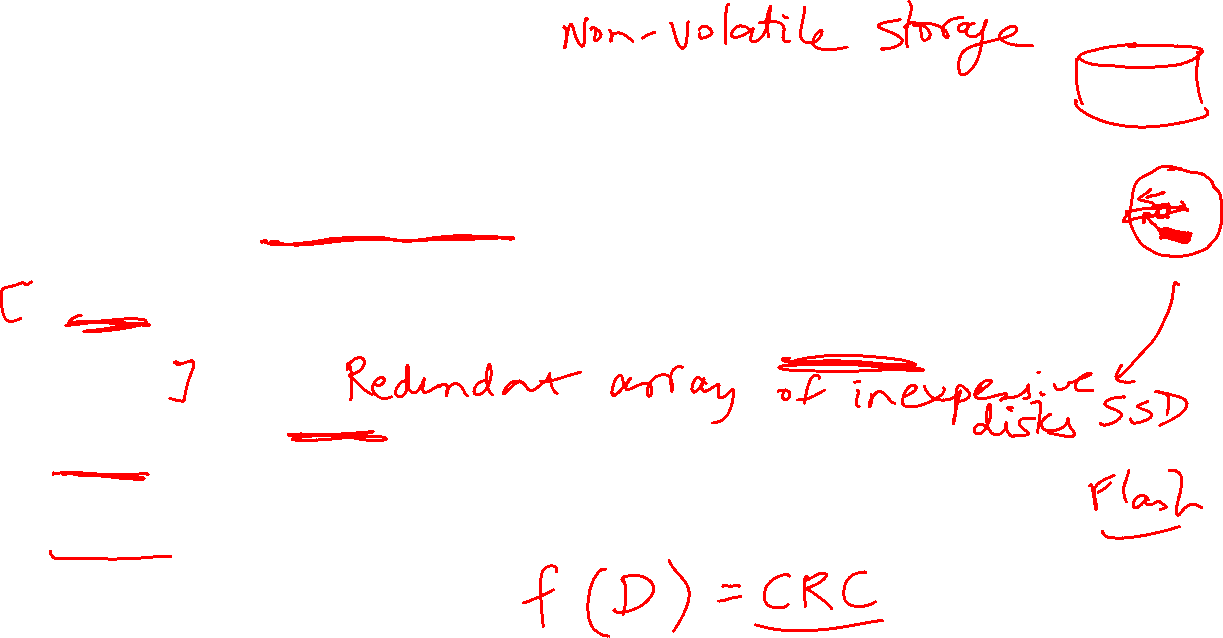 Non-volatile storage
[
]
Redundant array of inexpensive
disks SSD
Flash
f(D) = CRC